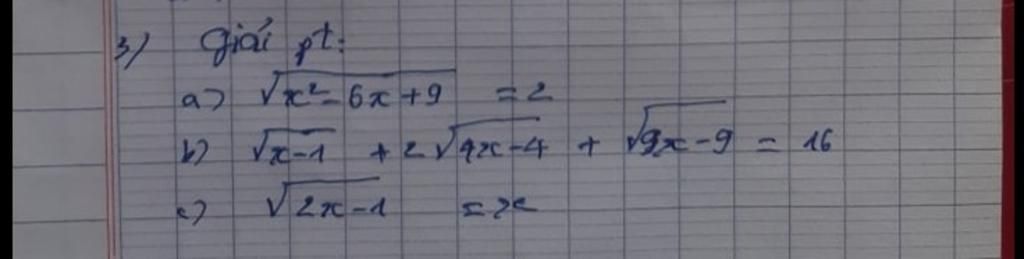 3) Giải pt:
a) √x²-6x+9 = 2
b) √x-1 + 2√4x-4 + √9x-9 = 16
c) √2x-1 = x